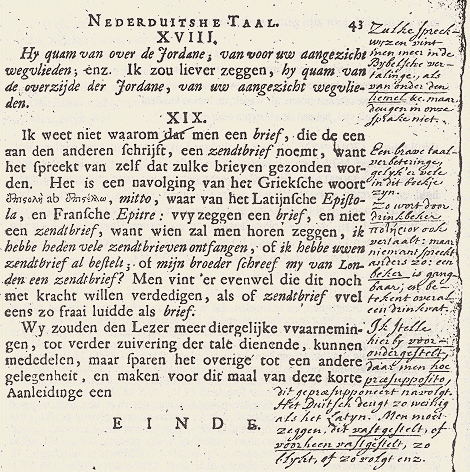 NEDERDUITSHE TAAL. 43
XVIII.
Hy quam van over de Jordane; van voor uw aangezicht
wegvlieden; enz. Ik zou liever zeggen, hy quam van
de overzijde der Jordane, van uw aangezicht wegvlie-
den.
XIX.
Ik weet niet waarom dat men een brief, die de een
aan den anderen schrijft, een zendtbrief noemt, want
het spreekt van zelf dat zulke brieven gezonden wor-
den. Het is een navolging van het Grieksche woort
ἀπὸ, mitto, waar van het Latijnsche Episto-
la, en Fransche Epitre: vvy zeggen een brief, en niet
een zendtbrief, want wien zal men horen zeggen, ik
hebbe heden vele zendtbrieven ontfangen, of ik hebbe uwen
zendtbrief al bestelt, of mijn broeder schreef my van Lon-
den een zendtbrief? Men vint 'er evenwel die dit noch
met kracht willen verdedigen, als of zendtbrief vvel
eens zo fraai luidde als brief.
Wy zouden den Lezer meer diergelijke vvaarnemin-
gen, tot verder zuivering der tale dienende, kunnen
mededelen, maar sparen het overige tot een andere
gelegenheit, en maken voor dit maal van deze korte
Aanleidinge een
EINDE.
Zulke spreek-
wijzen vint
men meer in de
Bybelsche ver-
talinge, als
van onder den
hemel &c. maar
deugen in onze
sprake niet.
Een brave taal-
verbeteringe,
gelyk 'er vele
in dit boekje
zyn.
Zo wort door
drinkbeker
poculum ook
vertaalt: maar
niemant spreekt
anders zo: een
beker is gang-
baar; en be-
tekent overal
een drinkvat.
Ik stelle
hier by voor-
ondergestelt,
daar men hoc
præsupposito,
dit gepræsupponeert navolgt.
Het Duitsch deugt zo weinig
als het Latyn. Men moet
zeggen, dit vast gestelt, of
voorheen vast gestelt, zo
blykt, of zo volgt enz.